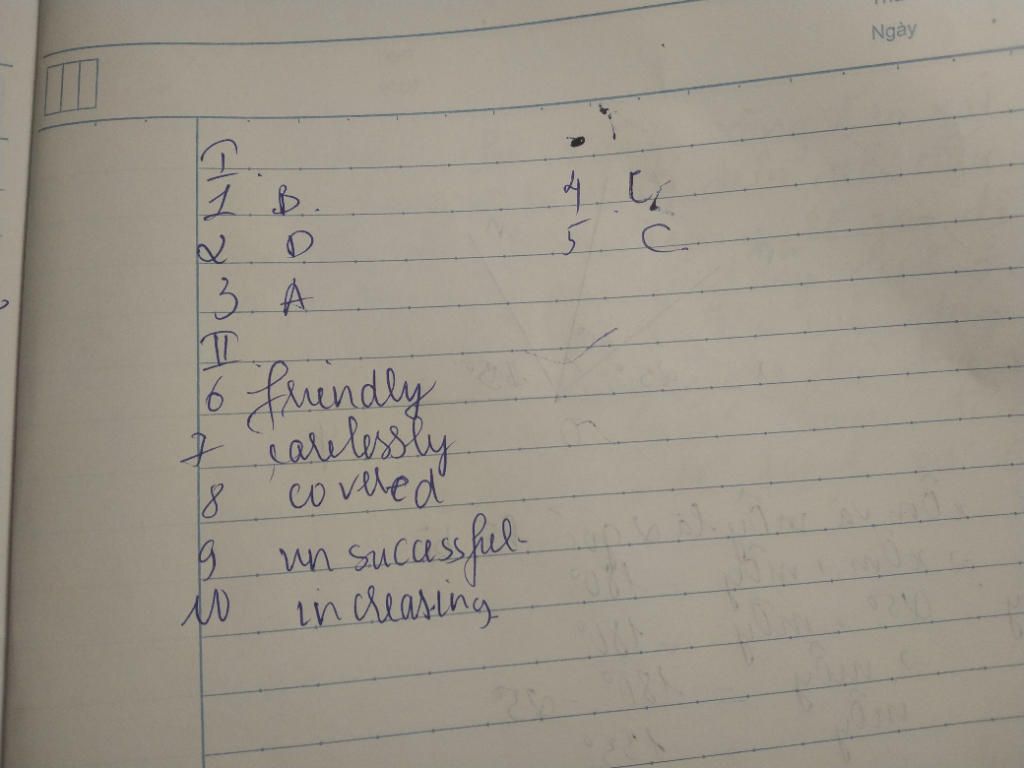 Ngày
I.
1 B. 4 C
2 D 5 C
3 A
II
6 friendly
7 carelessly
8 covered
9 unsuccessful.
10 increasing